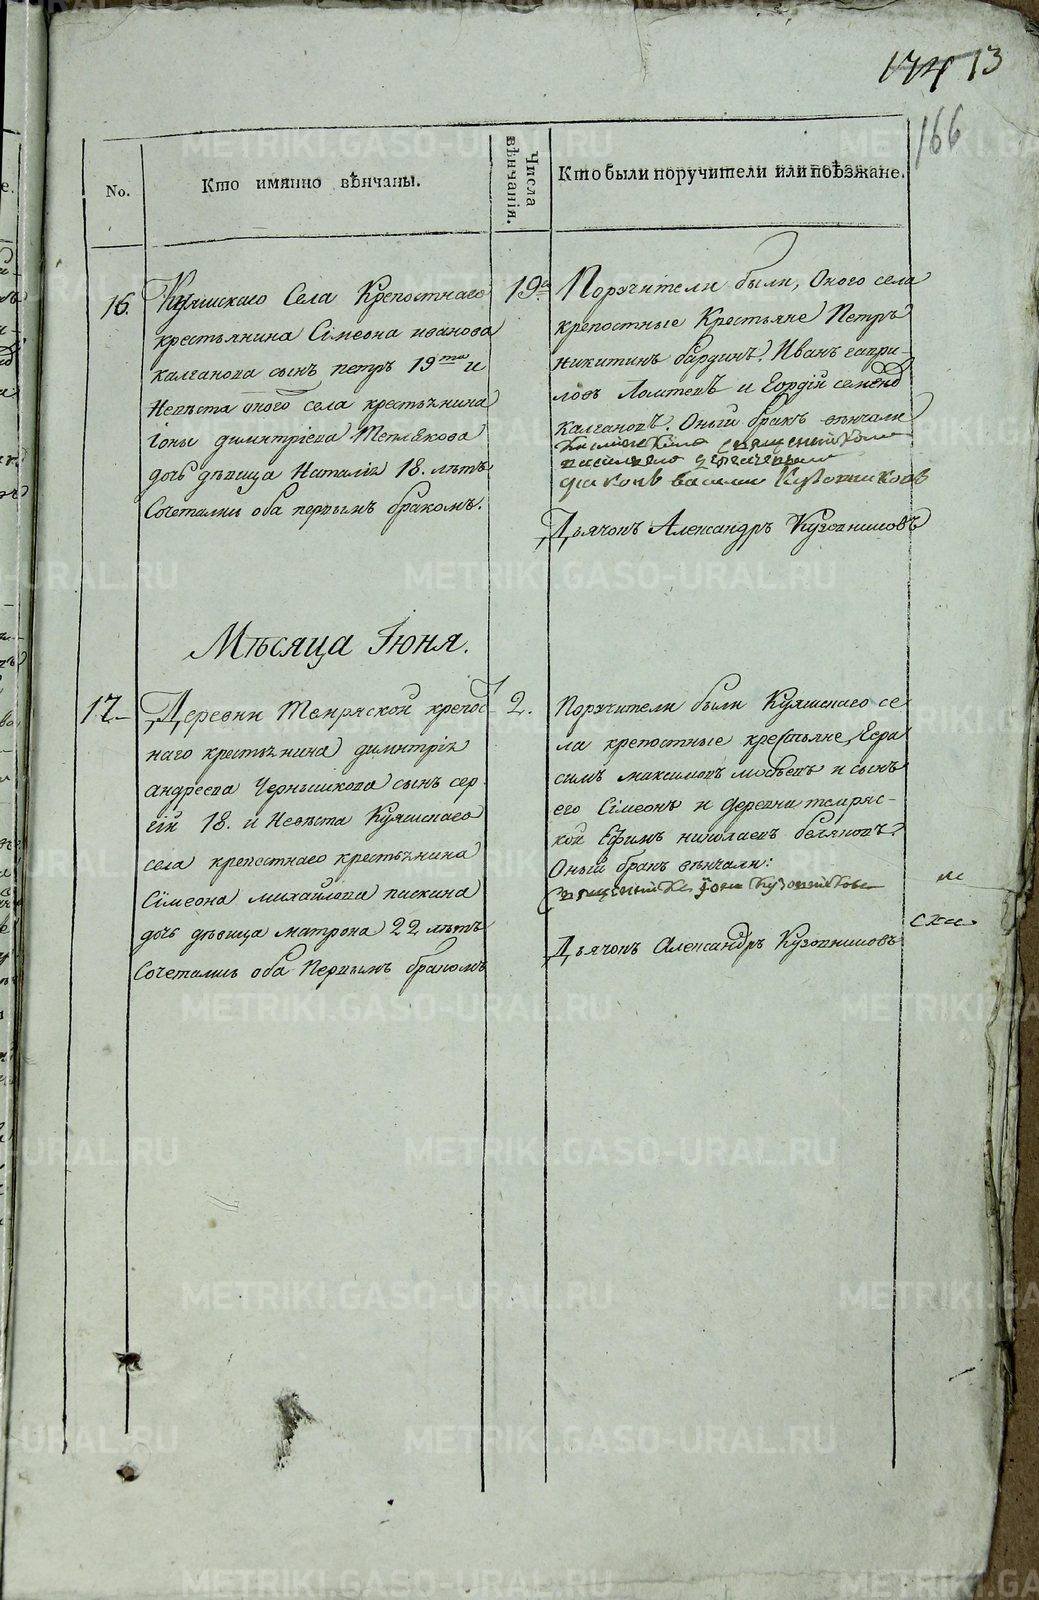 174 13
166
No.
Кто имянно вѣнчаны.
Числа вѣнчанія.
Кто были поручители или поѣзжане.
16.
Куяшскаго Села Крепостнаго
крестьянина Сімеона иванова
калганова сынъ петръ 19та и
Невѣста оного села крестьянина
Іоны димитріева Метлѣкова
дочь дѣвица Наталія 18. лѣтъ
Сочетались оба первымъ бракомъ.
19го
Поручители были, Оного села
крепостные Крестьяне Петръ
никитинъ бардинъ. Иванъ гаври-
ловъ Ломтевъ и Гордій семено
калгановъ. Оный бракъ вѣнчали
діаконъ василий Кузовниковъ
Дьячокъ Александръ Кузовниковъ
Мѣсяца Іюня.
17.
Деревни Тюпряской крепос
наго крестьянина димитрія
андреева Чернышкова сынъ сер-
гій 18. и Невѣста Куяшскаго
села крепостнаго крестьянина
Сімеона михайлова паскина
дочь дѣвица матрона 22 лѣтъ
Сочетались оба Первымъ бракомъ
2.
Поручители были Куяшскаго се
ла крепостные крестьяне, Гера
симъ максимовъ и сынъ
его Сімеонъ и деревни
кой Ефимъ николаевъ беляновъ
Оный бракъ вѣнчали:
Кузовниковъ
Дьячокъ Александръ Кузовниковъ
METRIKI.GASO-URAL.RU